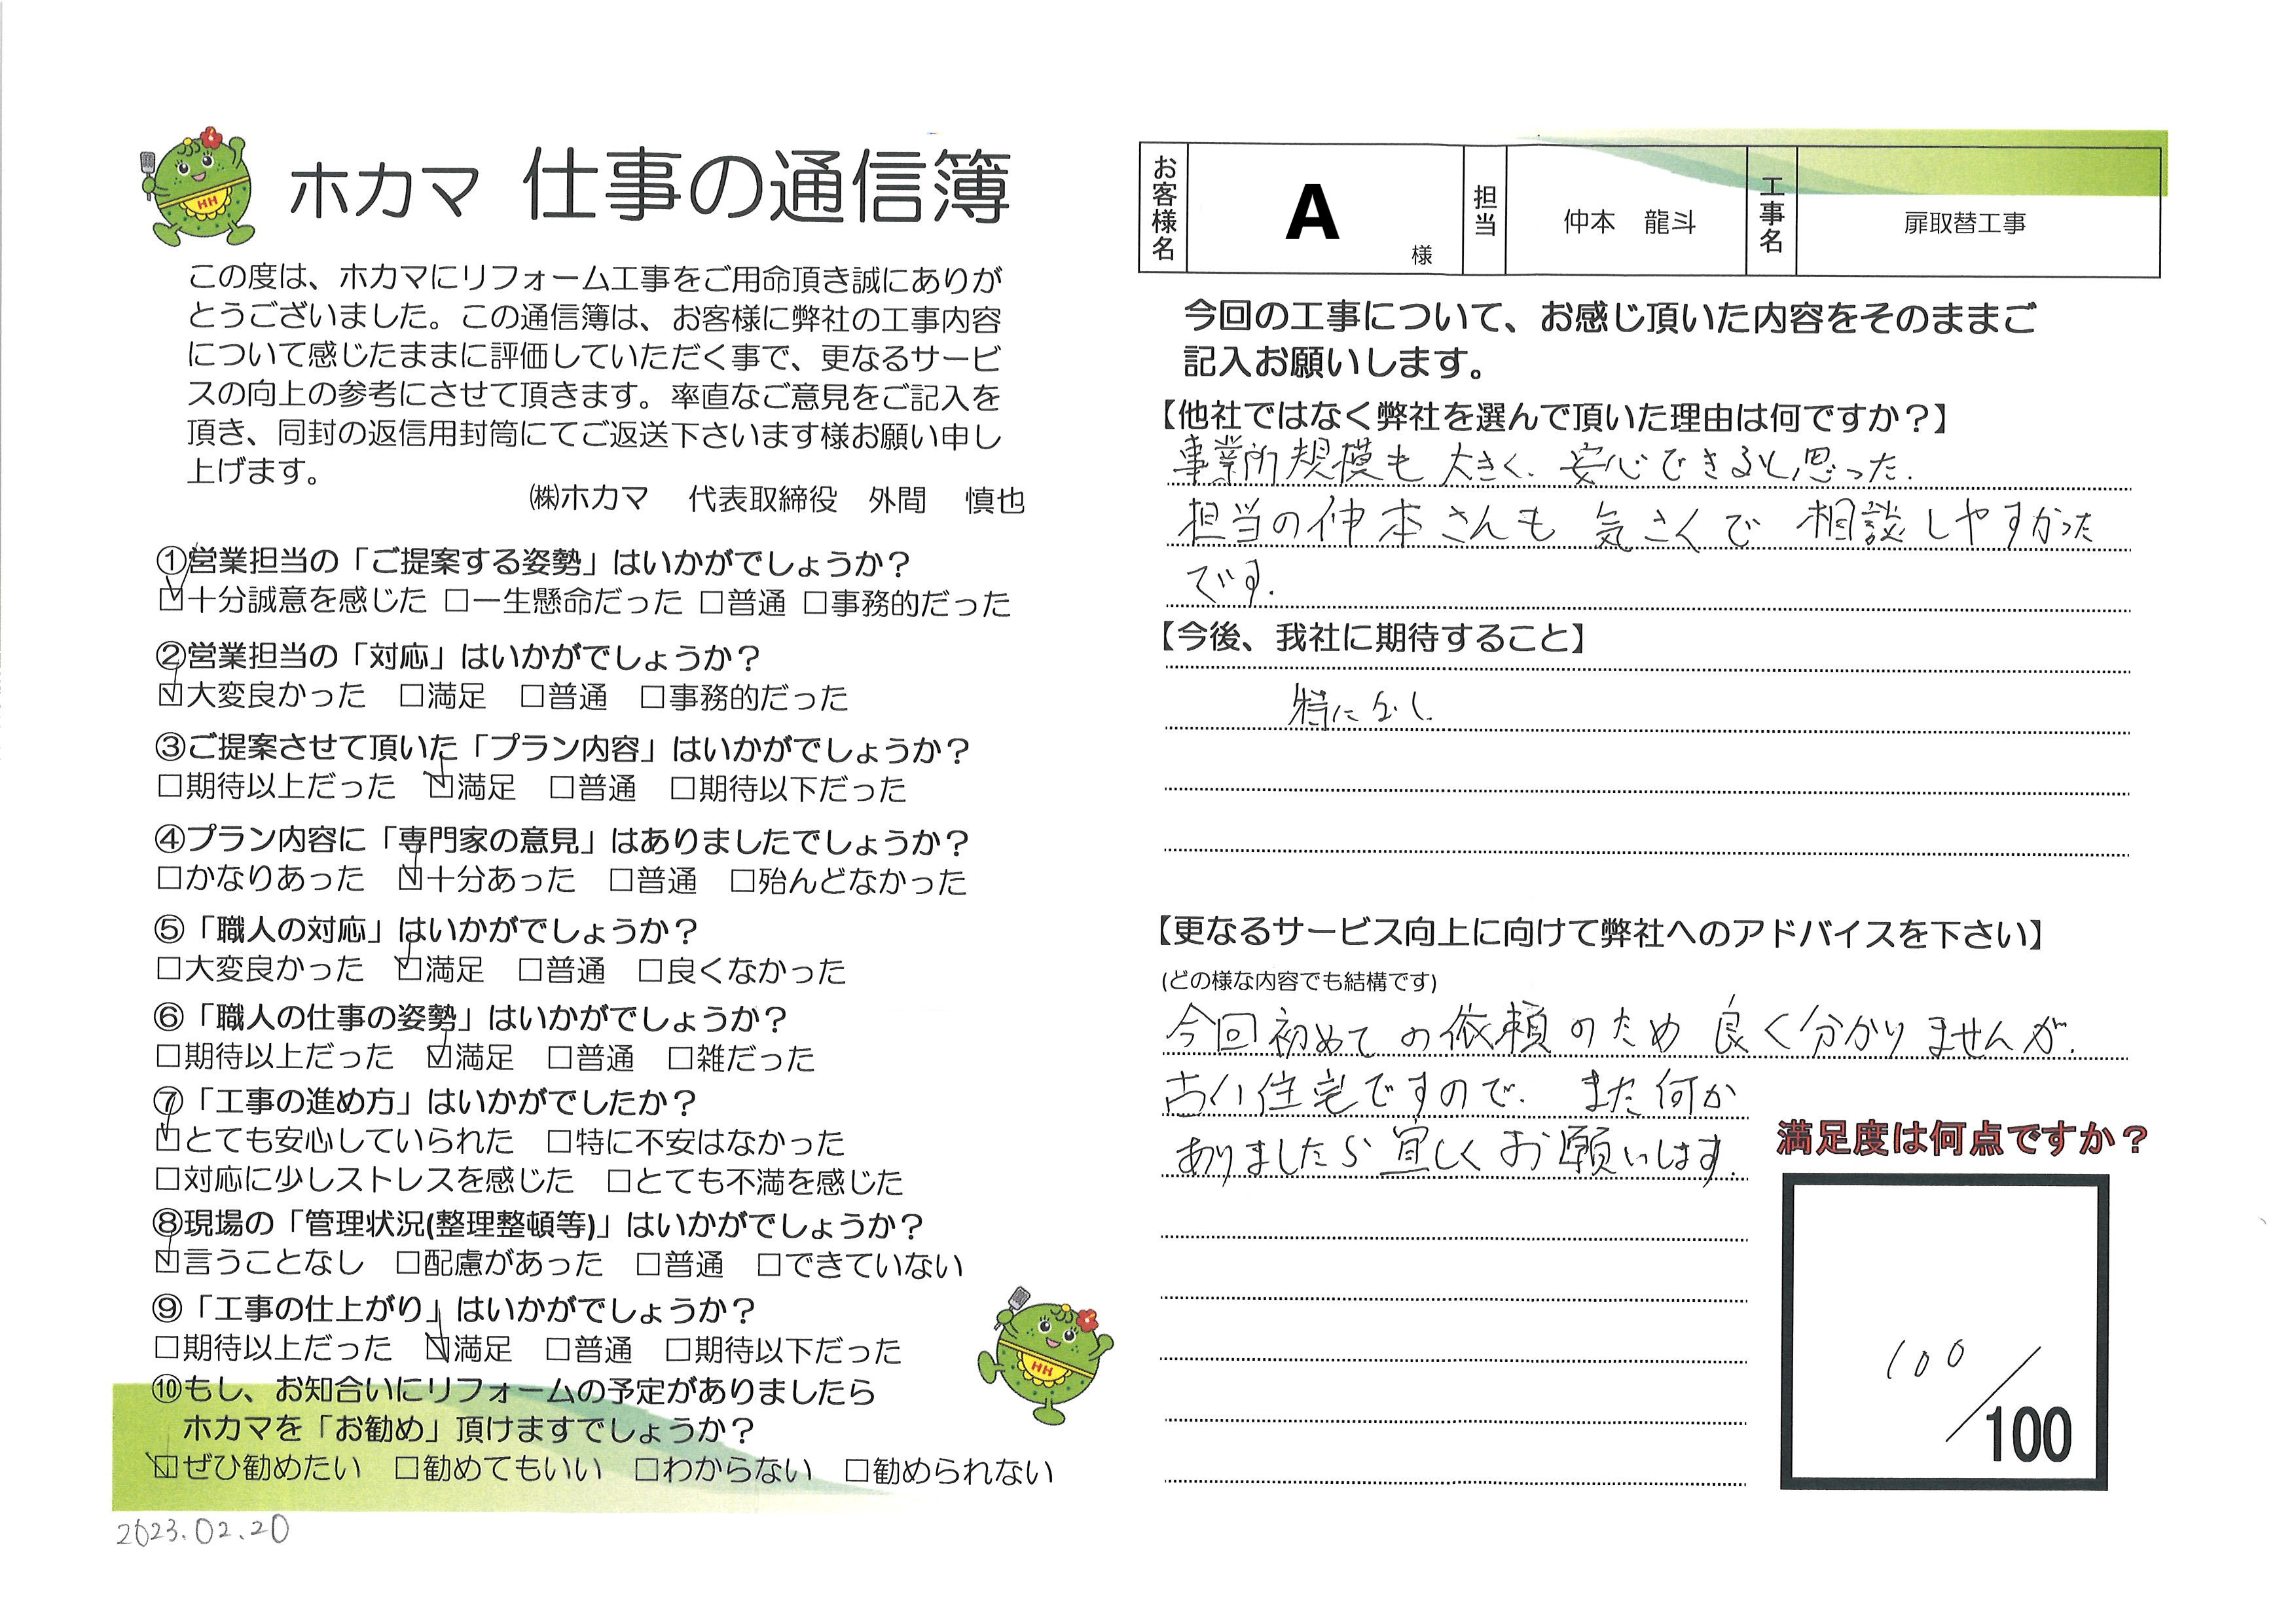 ホカマ 仕事の通信簿
この度は、ホカマにリフォーム工事をご用命頂き誠にありが
とうございました。この通信簿は、お客様に弊社の工事内容
について感じたままに評価していただく事で、更なるサービ
スの向上の参考にさせて頂きます。率直なご意見をご記入を
頂き、同封の返信用封筒にてご返送下さいます様お願い申し
上げます。
㈱ホカマ 代表取締役 外間 慎也
①営業担当の「ご提案する姿勢」はいかがでしょうか？
☑十分誠意を感じた □一生懸命だった □普通 □事務的だった
②営業担当の「対応」はいかがでしょうか？
☑大変良かった □満足 □普通 □事務的だった
③ご提案させて頂いた「プラン内容」はいかがでしょうか？
□期待以上だった ☑満足 □普通 □期待以下だった
④プラン内容に「専門家の意見」はありましたでしょうか？
□かなりあった ☑十分あった □普通 □殆んどなかった
⑤「職人の対応」はいかがでしょうか？
□大変良かった ☑満足 □普通 □良くなかった
⑥「職人の仕事の姿勢」はいかがでしょうか？
□期待以上だった ☑満足 □普通 □雑だった
⑦「工事の進め方」はいかがでしたか？
☑とても安心していられた □特に不安はなかった
□対応に少しストレスを感じた □とても不満を感じた
⑧現場の「管理状況(整理整頓等)」はいかがでしょうか？
☑言うことなし □配慮があった □普通 □できていない
⑨「工事の仕上がり」はいかがでしょうか？
□期待以上だった ☑満足 □普通 □期待以下だった
⑩もし、お知合いにリフォームの予定がありましたら
ホカマを「お勧め」頂けますでしょうか？
☑ぜひ勧めたい □勧めてもいい □わからない □勧められない
2023.02.20
お客様名 A 様 担当 仲本 龍斗 工事名 扉取替工事
今回の工事について、お感じ頂いた内容をそのままご
記入お願いします。
【他社ではなく弊社を選んで頂いた理由は何ですか？】
事業所規模も大きく、安心できると思った.
担当の仲本さんも 気さくで 相談しやすかった
です.
【今後、我社に期待すること】
特になし.
【更なるサービス向上に向けて弊社へのアドバイスを下さい】
(どの様な内容でも結構です)
今回初めての依頼のため良く分かりませんが.
古い住宅ですので. また何か
ありましたら宜しくお願いします.
満足度は何点ですか？
100／100
HH
HH